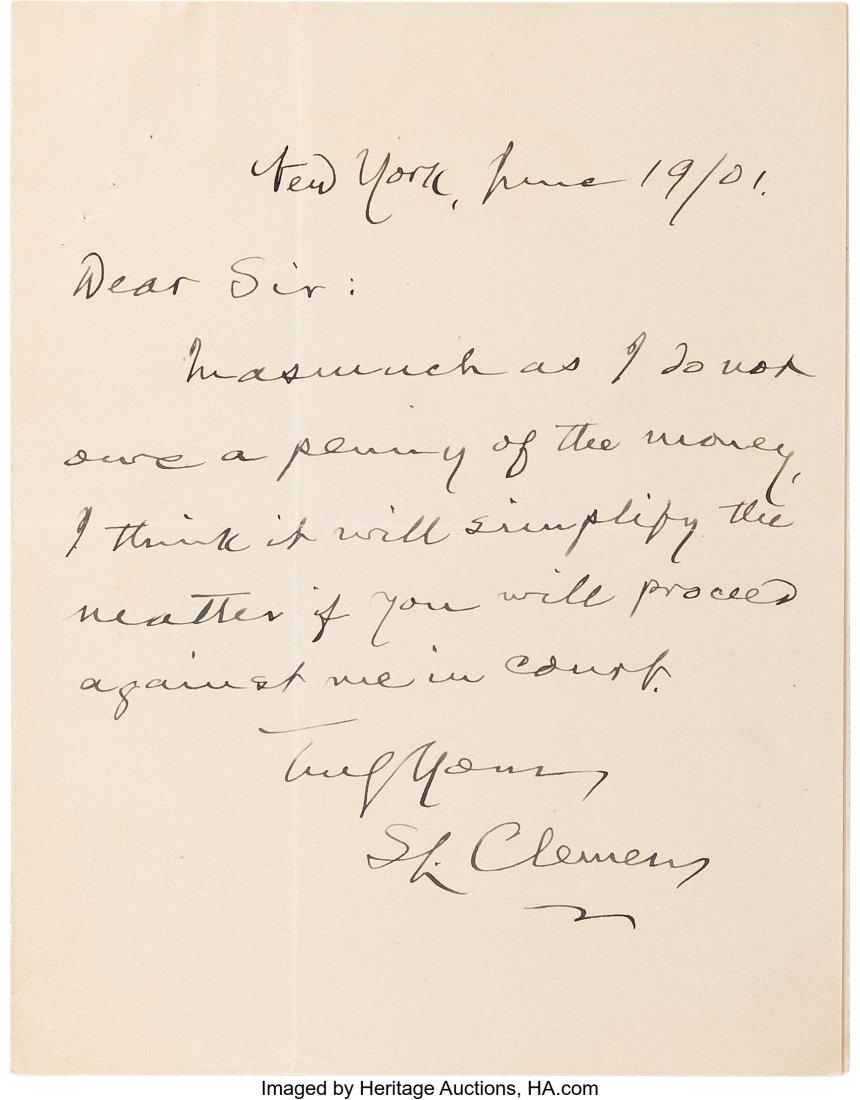 New York, June 19/01.
Dear Sir:
Inasmuch as I do not
owe a penny of the money,
I think it will simplify the
matter if you will proceed
against me in court.
Truly Yours
SL. Clemens
Imaged by Heritage Auctions, HA.com